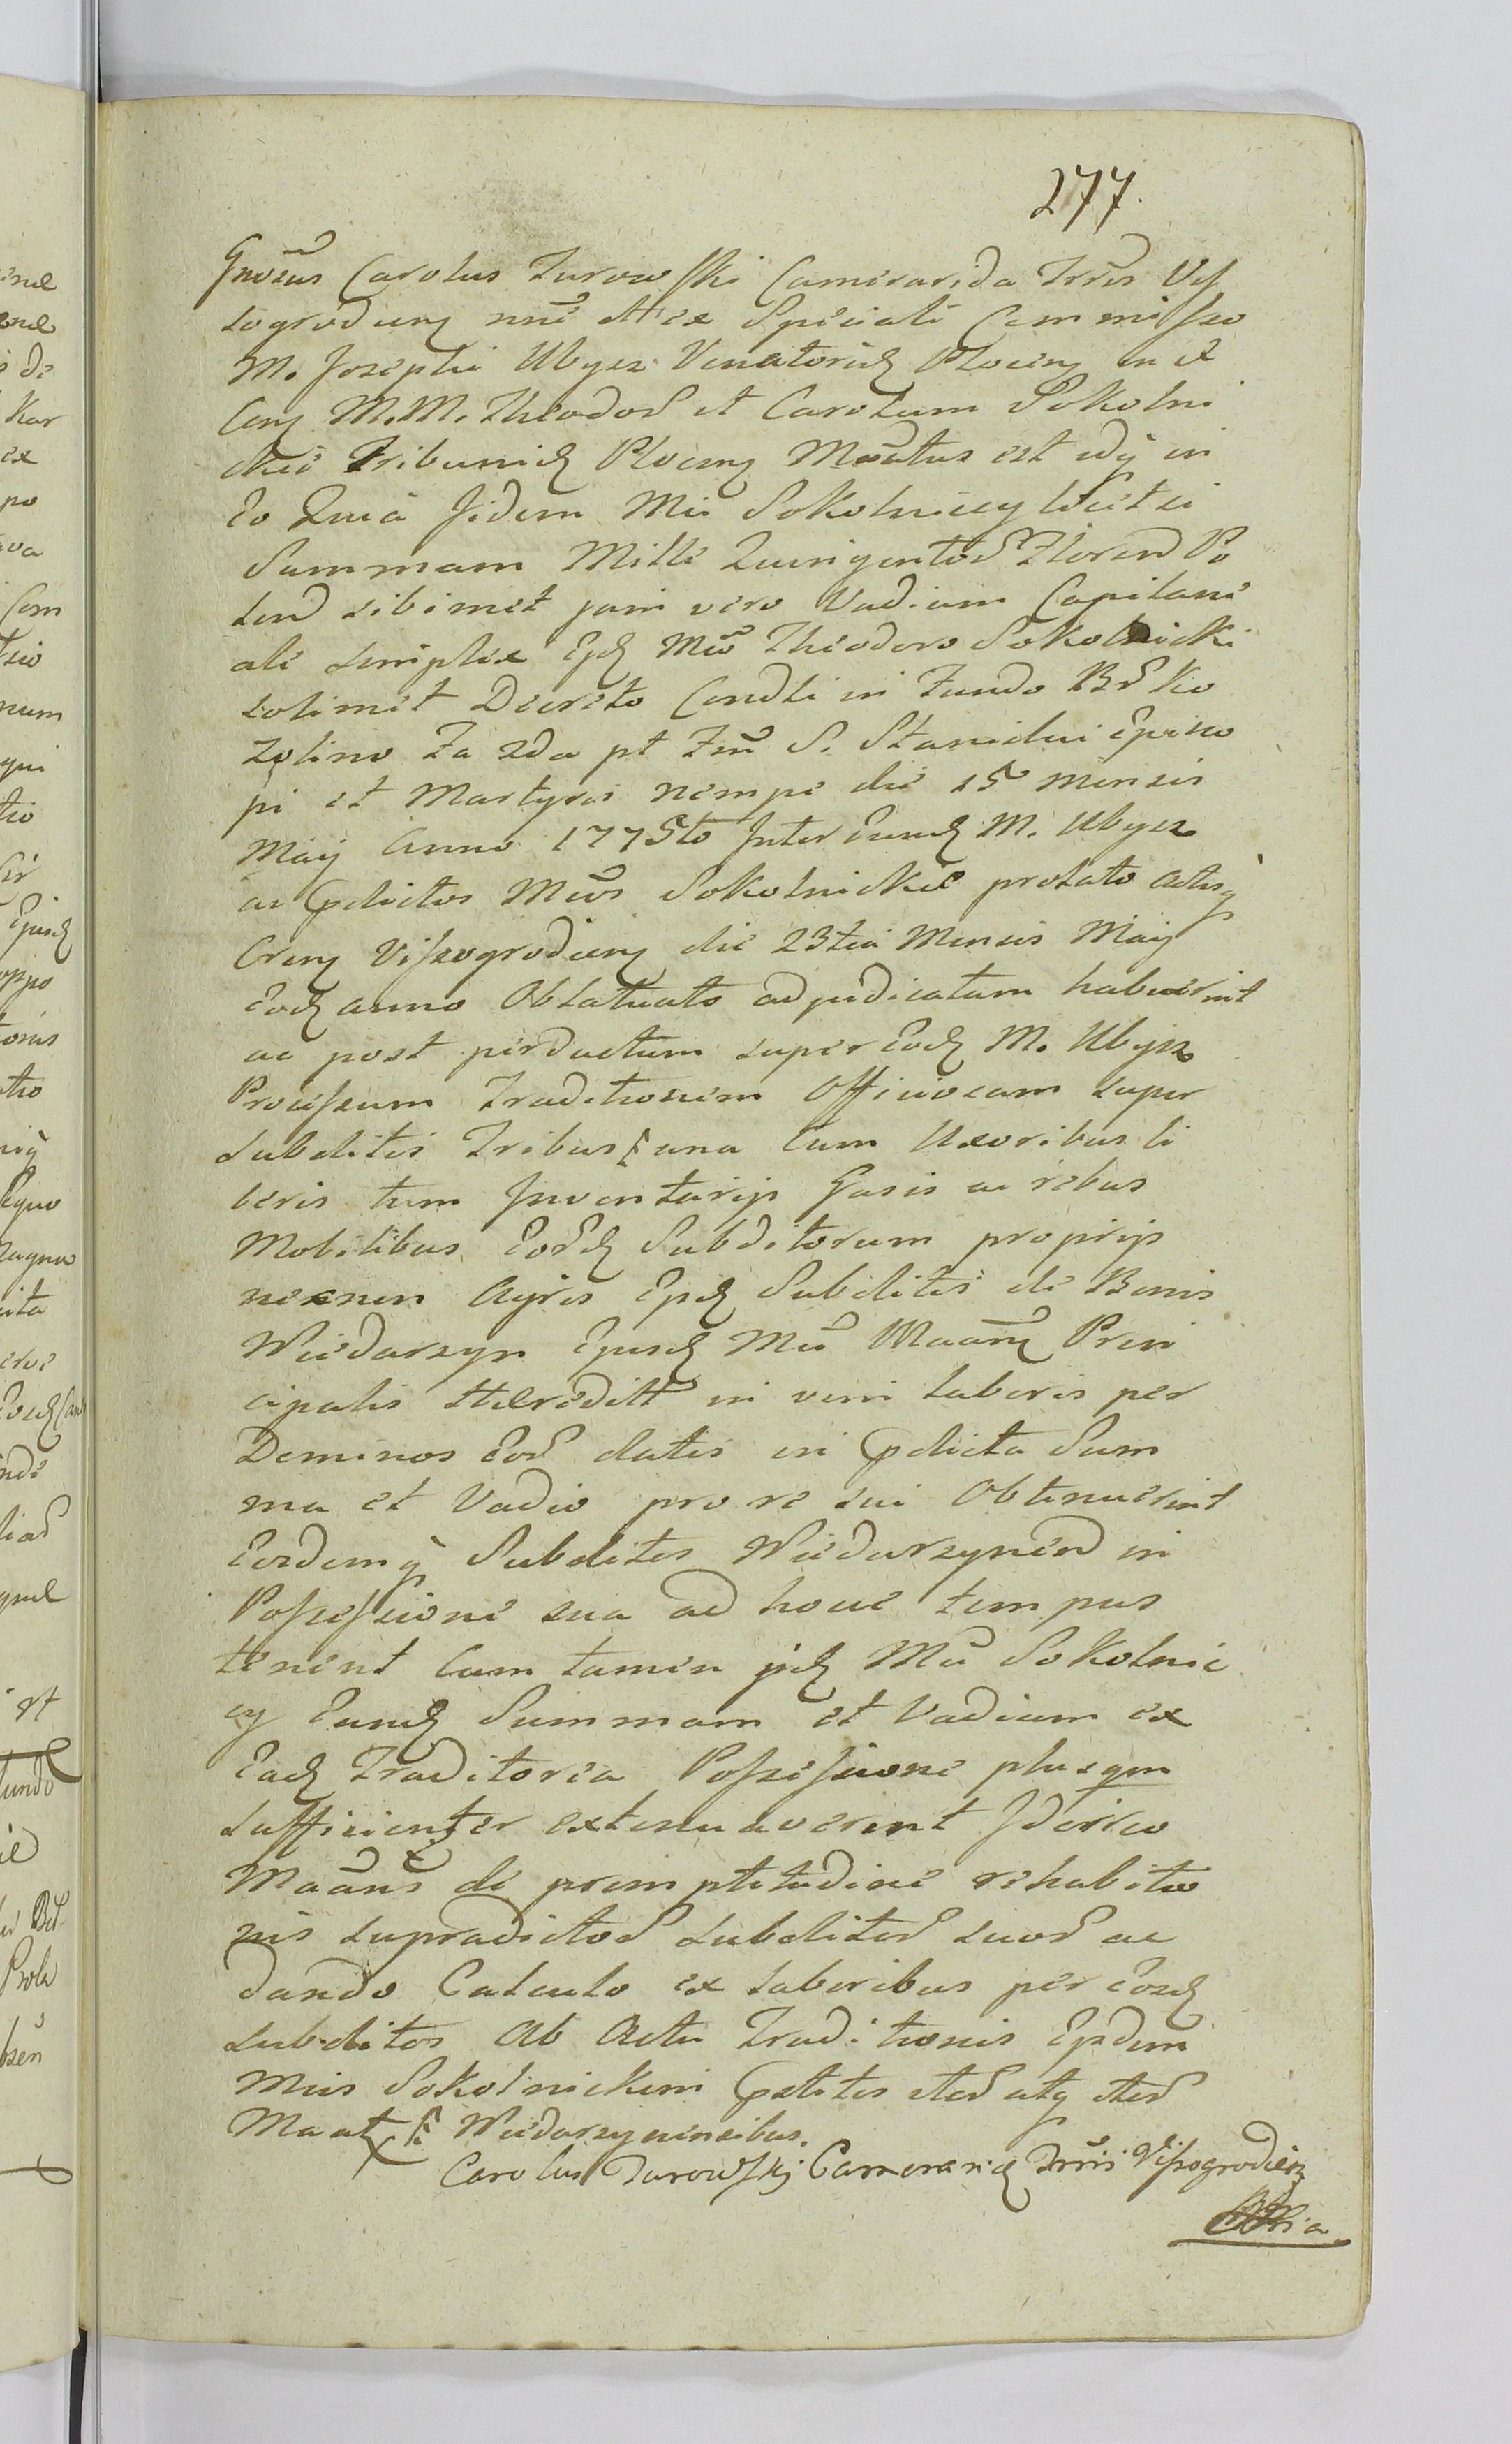 277.
Gnosus Carolus Zurowski Camerarida Trris Vis
sogrodieng nne et ex Speciali Commisso
M. Josephi Ubysz Venatorid Ploceng in et
Cong M.M. Theodor et Carolum Sokolni
ckie Tribunid Ploceng Mantus est idq in
eo Quia jidem Mii Sokolniccy licet ei
Summam Mille Quingentor Floren Po
lon sibimet jam vero Vadium Capitane
ale simplex Ejd Mco Theodoro Sokolnicki
solimet Decreto Condli in Fundo
Za zda pt Fm S. Stanislai Episco
pi et Martyris nempe die 15 mensis
Maij Anno 1775to Inter Eund M. Ubysz
ac pdictos Mcos Sokolnickie prolato Actisq
Creng Vissogrodieng die 23tia Mensis Maij
Eod anno Oblatuato adjudicatam habuerint
ac post perductum super Eod M. Ubysz
Processum Traditionem Officiosam super
Subditis Tribus una Cum Uxoribus li
beris tum Inventarijs Gasis ac rebus
Mobilibus Eord Subditorum proprijs
necnon Agris Ejsd Subditis de Bonis
Wiedarzyn Ejusd Mci Maang Prin
cipalis Haeredit in vim laboris per
Dominos Eor datis in pdicta Sum
ma et Vadio pro re sui Obtinuerint
Eosdemq Subditos Wiedarzynen in
Possessione sua ad hocce tempus
tenent Cum tamen jid Mci Sokolnic
cy Eand Summam et Vadium ex
Ead Traditoria Possessione plusqm
sufficienter extenuaverint Idcirco
Maans de promptitudine rehabitio
nis supradictor subditor suor ac
dando Calculo ex laboribus per Eosd
subditos Ab Actu Traditionis Ejsdem
Mcis Sokolnickim pstitis iter atq iter
Maat Wiedarzynensibus.
Carolus Zurowskj Camerarid Trris Vissogrodien